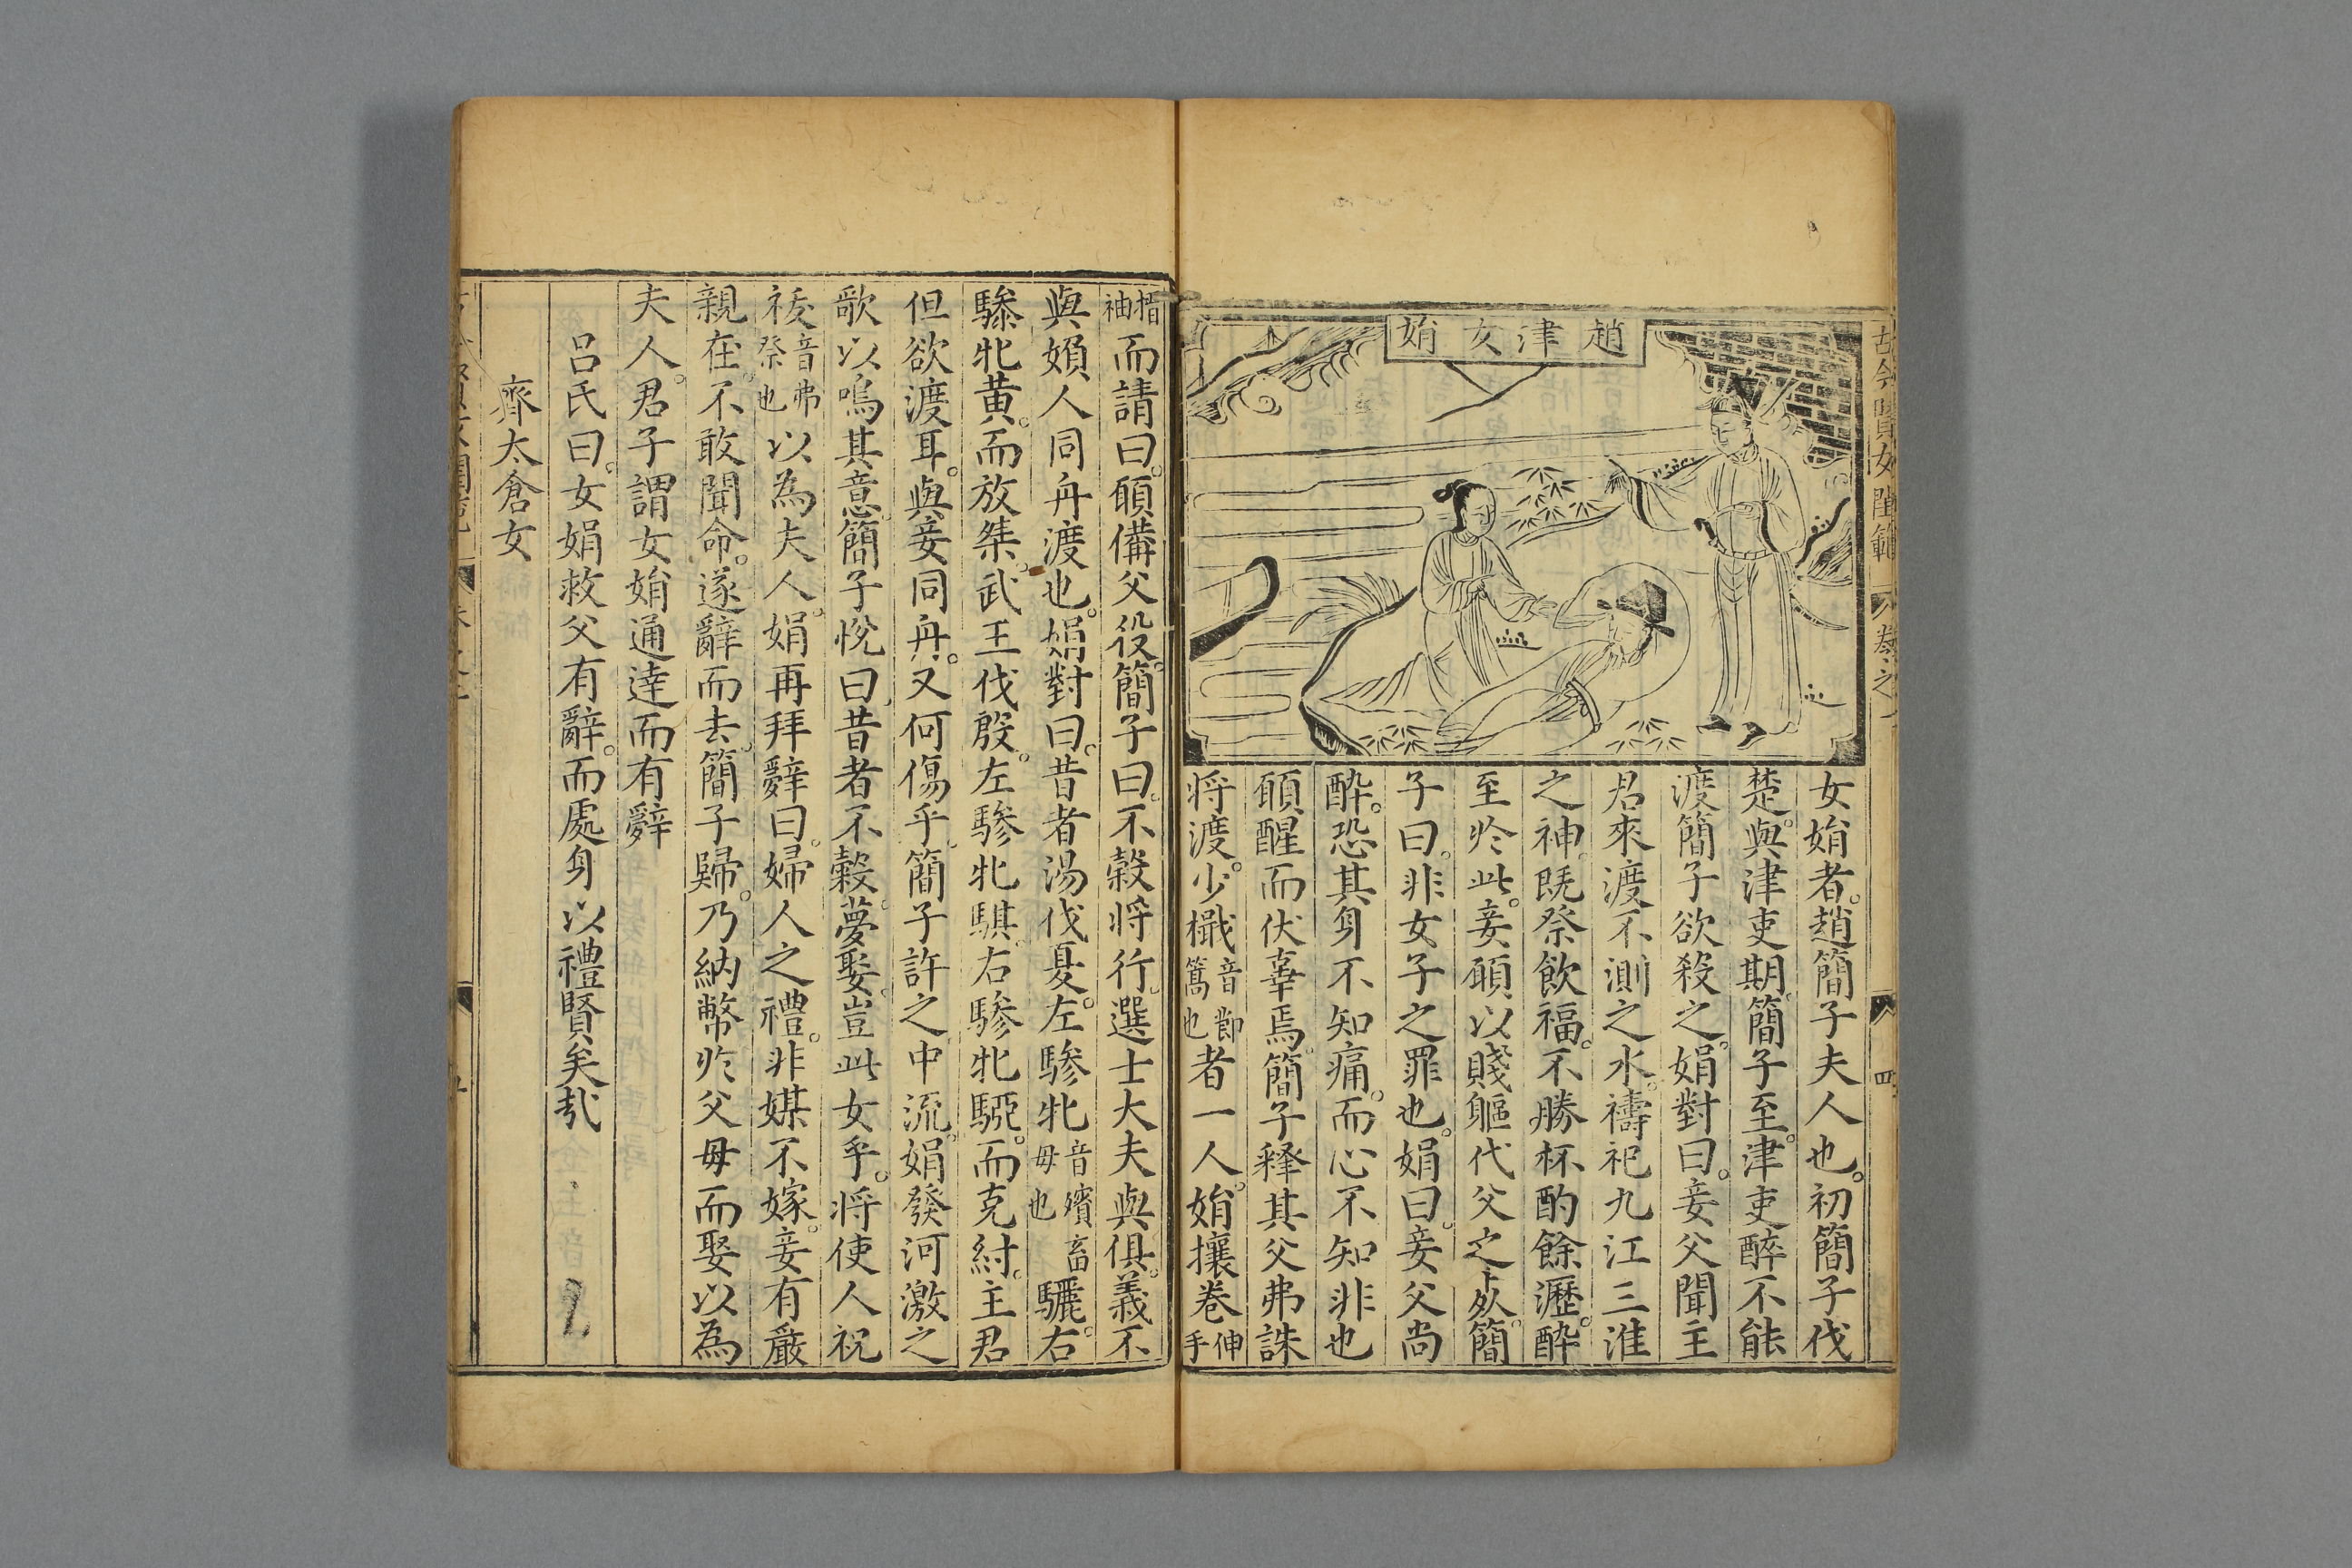 古今賢女閨範
卷之
四
趙津女娟
女娟者趙簡子夫人也初簡子伐
楚與津吏期簡子至津吏醉不能
渡簡子欲殺之娟對曰妾父聞主
君來渡不測之水禱祀九江三淮
之神既祭飲福不勝杯酌餘瀝醉
至於此妾願以賤軀代父之死簡
子曰非女子之罪也娟曰妾父尚
醉恐其身不知痛而心不知非也
願醒而伏辜焉簡子釋其父弗誅
將渡少檝音節篙也者一人娟攘卷伸手
揎袖而請曰願備父役簡子曰不穀將行選士大夫與俱義不
與婦人同舟渡也娟對曰昔者湯伐夏左驂牝音殯畜母也驪右
驂牝黃而放桀武王伐殷左驂牝騏右驂牝騢而克紂主君
但欲渡耳與妾同舟又何傷乎簡子許之中流娟發河激之
歌以鳴其意簡子悅曰昔者不穀夢娶豈此女乎將使人祝
祓音弗祭也以為夫人娟再拜辭曰婦人之禮非媒不嫁妾有嚴
親在不敢聞命遂辭而去簡子歸乃納幣於父母而娶以為
夫人君子謂女娟通達而有辭
呂氏曰女娟救父有辭而處身以禮賢矣哉
齊太倉女